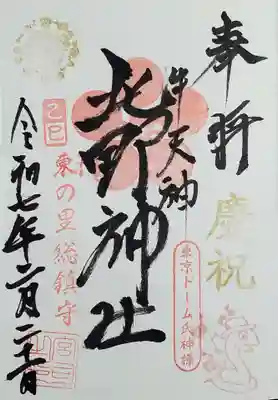 奉拝
慶祝
牛天神
東京ドーム氏神様
北野神社
乙巳
東の里総鎮守
令和七年二月